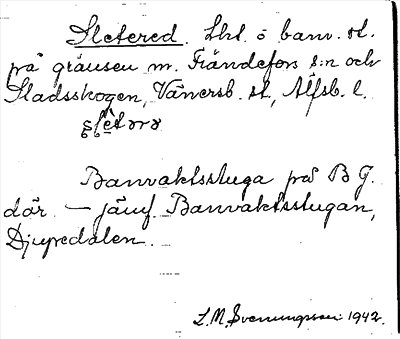 Sletered. Lht. o banv. st.
på gränsen m. Frändefors s:n och
Stadsskogen, Vänersb. st., Älfsb. l.
Banvaktsstuga på B G.
där. — jämf. Banvaktsstugan,
Djupedalen.
L. M. Svenungsson 1942.